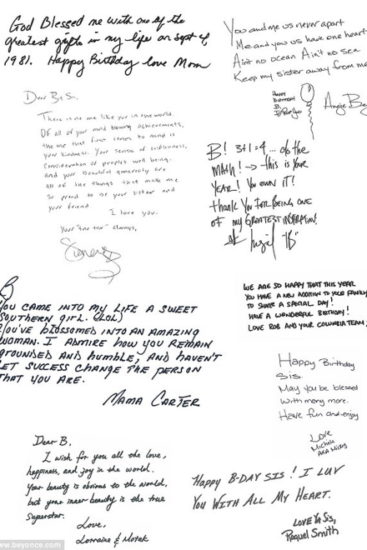 God Blessed me with one of the
greatest gifts in my life on Sept 4
1981. Happy Birthday love Mom
You and me us never apart
Me and you us have one heart
Ain't no ocean Ain't no sea
Keep my sister away from me
Angie
Dear B,
There is no one like you in the world.
Of all of your mind blowing achievements,
the one that first comes to mind is
your kindness. Your sense of
consideration of peoples well being.
and your beautiful generosity are
all of the things that make me
so proud to be your sister and
your friend.
I love you.
always,
B! 3+1=4 ... do the
MATH! → this is your
YEAR! You own it!
thank you for being one
of my GREATEST INSPIRATION!
B
YOU CAME INTO MY LIFE A SWEET
SOUTHERN GIRL. (LOL)
YOU'VE BLOSSOMED INTO AN AMAZING
WOMAN. I ADMIRE HOW YOU REMAIN
GROUNDED AND HUMBLE, AND HAVEN'T
LET SUCCESS CHANGE THE PERSON
THAT YOU ARE.
MAMA CARTER
WE ARE SO HAPPY THAT THIS YEAR
YOU HAVE A NEW ADDITION TO YOUR FAMILY
TO SHARE A SPECIAL DAY!
HAVE A WONDERFUL BIRTHDAY!
LOVE ROB AND YOUR COLUMBIA TEAM
Happy Birthday
Sis.
May you be blessed
with many more.
Have fun and enjoy
Love
Michelle
Dear B,
I wish for you all the love,
happiness, and joy in the world.
Your beauty is obvious to the world,
but your inner beauty is the true
Superstar.
Love,
Lorraine &
Happy B-DAY SIS! I LUV
YOU WITH ALL MY HEART.
LOVE Ya Sis,
Raquel Smith
www.beyonce.com